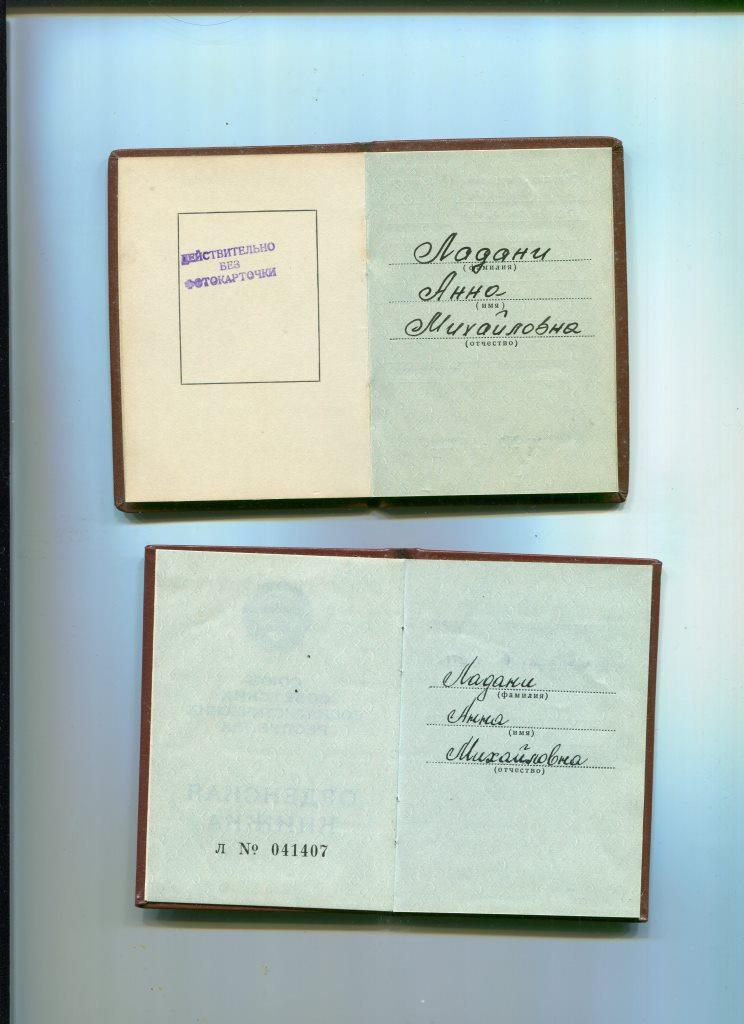 ДЕЙСТВИТЕЛЬНО
БЕЗ
ФОТОКАРТОЧКИ
Ладани
(фамилия)
Анна
(имя)
Михайловна
(отчество)
ОРДЕНСКАЯ
КНИЖКА
Л № 041407
Ладани
(фамилия)
Анна
(имя)
Михайловна
(отчество)